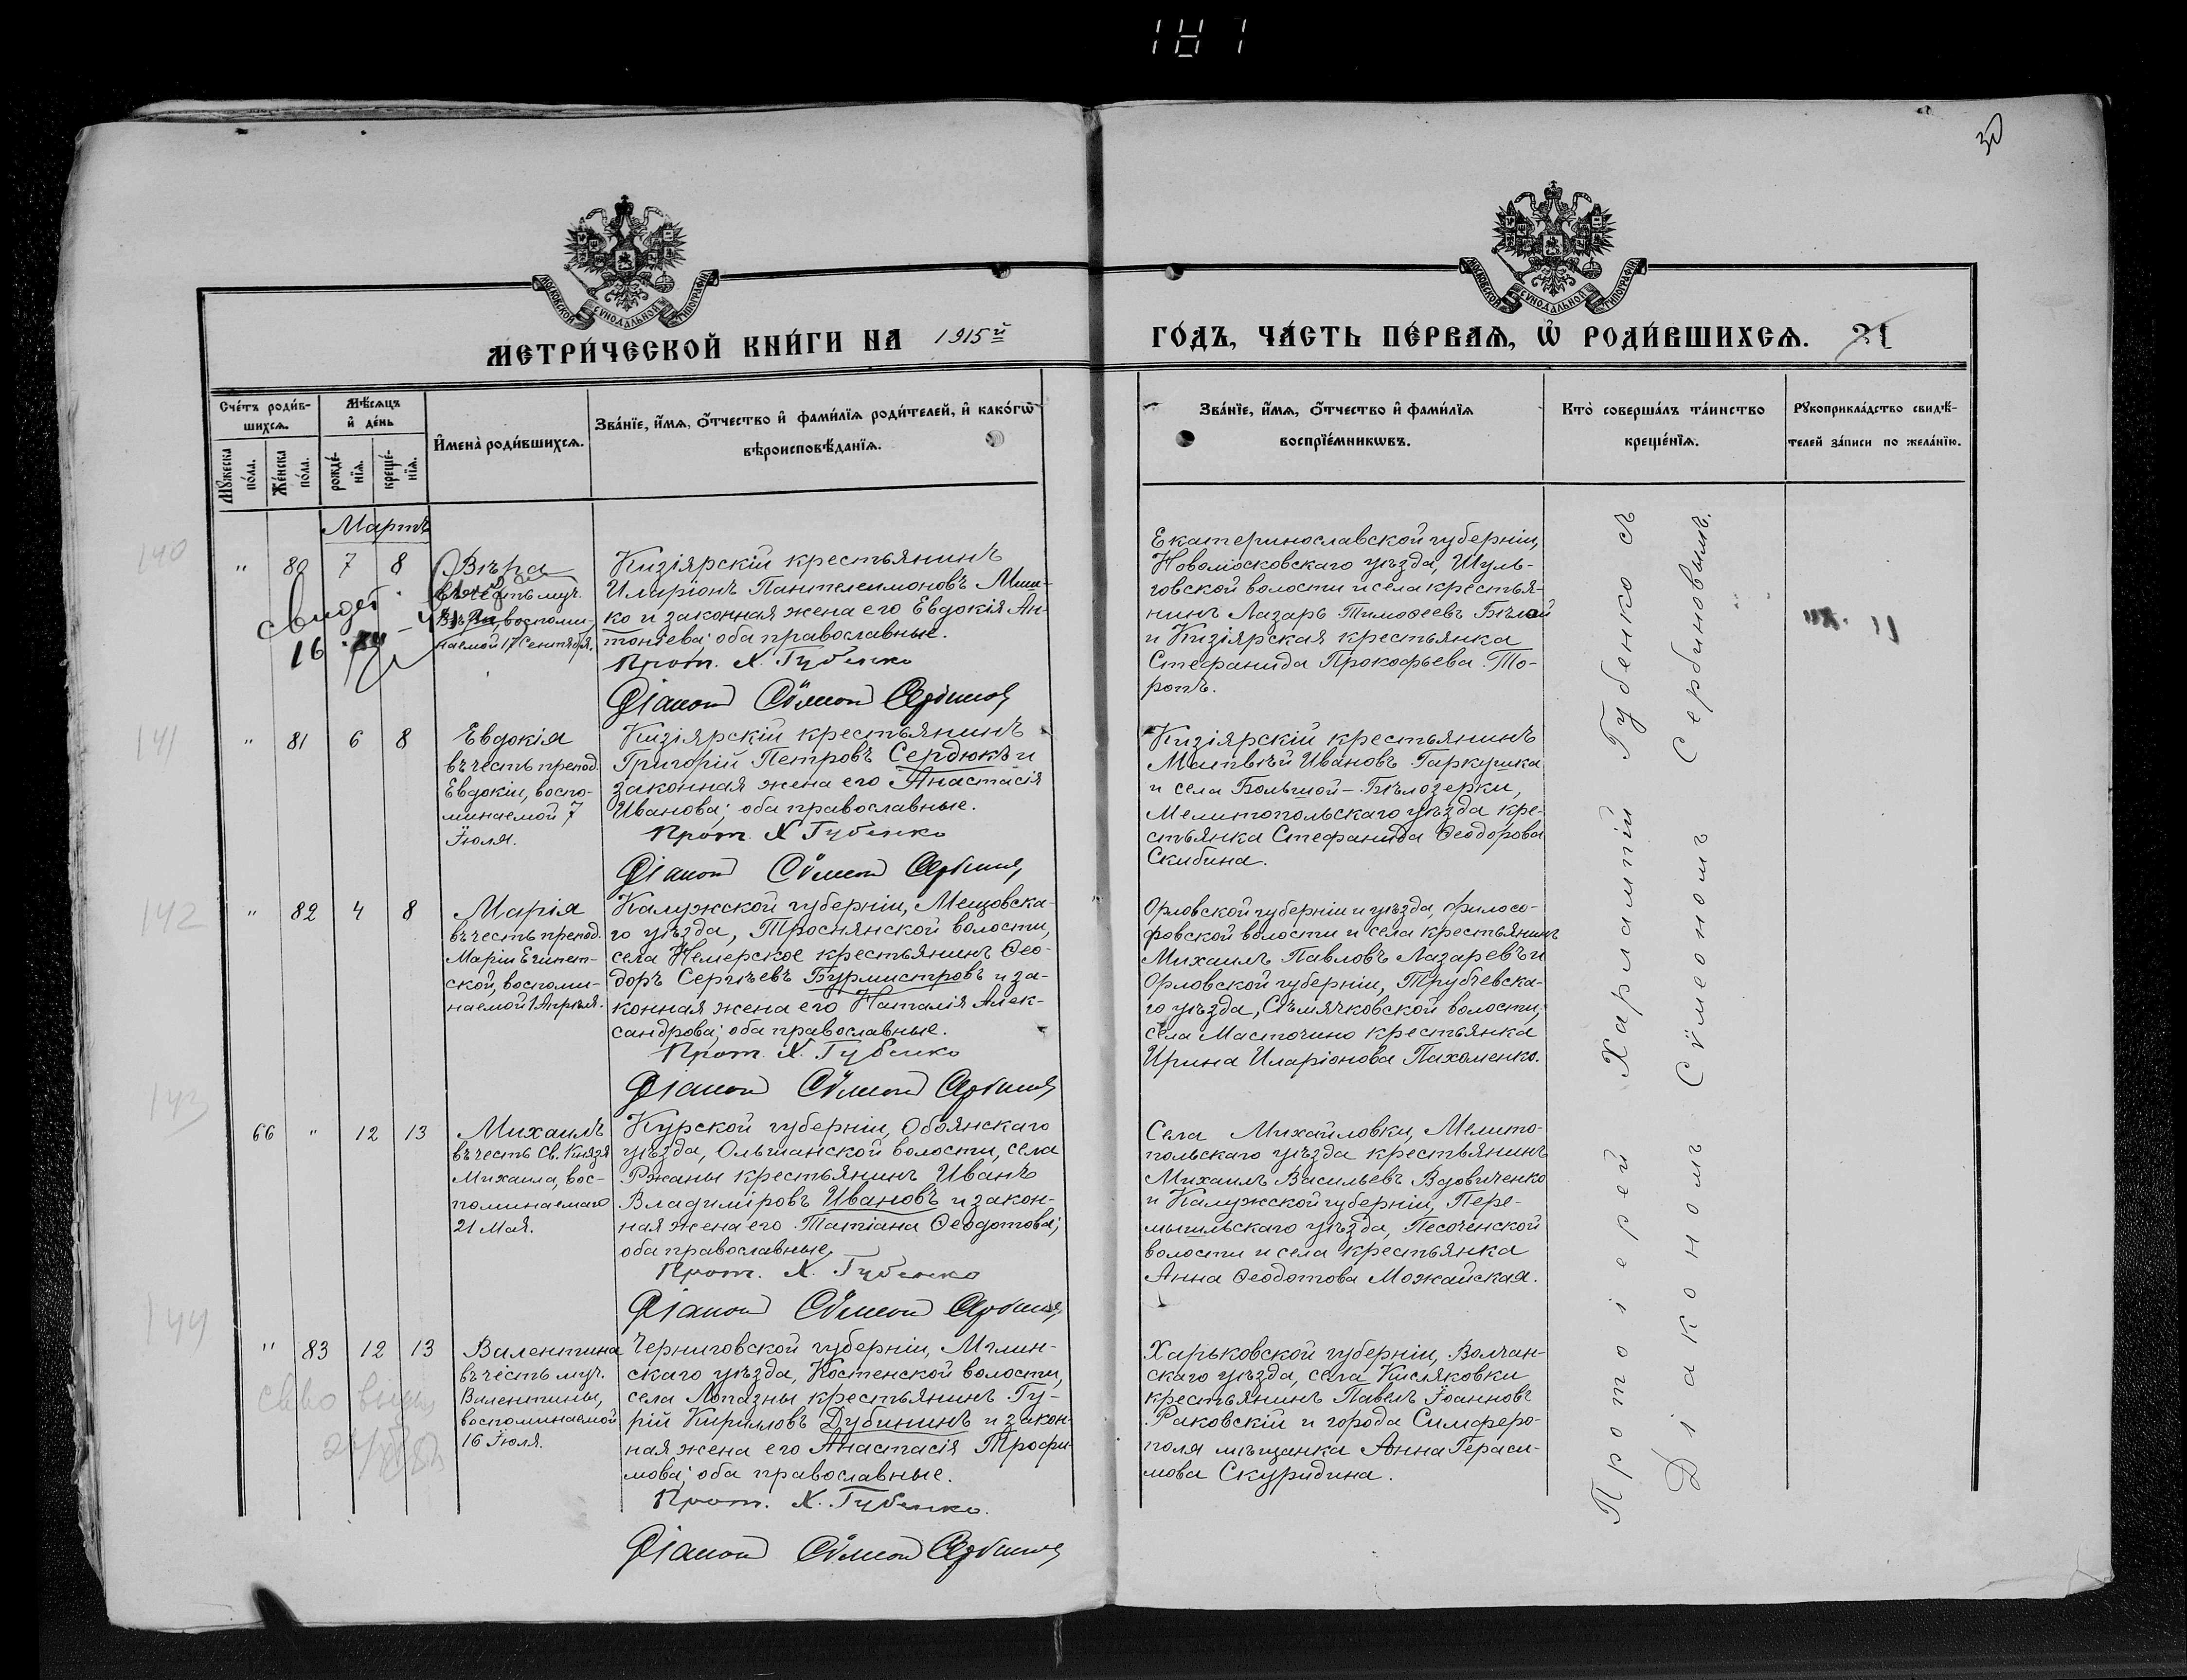 187
30
МОСКОВСКОЙ СѴНОДАЛЬНОЙ ТИПОГРАФІИ
МОСКОВСКОЙ СѴНОДАЛЬНОЙ ТИПОГРАФІИ
МЕТРИ́ЧЕСКОЙ КНИ́ГИ НА 1915й
ГО́ДЪ, ЧА́СТЬ ПЕ́РВАѦ, Ѡ҆ РОДИ́ВШИХСѦ. 21
Сче́тъ роди́в-
шихсѧ.
Мѣ́сѧцъ
и҆ де́нь
Мꙋ́жеска
по́ла.
Же́нска
по́ла.
рожде́-
нїѧ.
креще́-
нїѧ.
И҆мена̀ роди́вшихсѧ.
Зва́нїе, и҆́мѧ, ѻ҆́тчество и҆ фами́лїѧ роди́телей, и҆ како́гѡ
вѣроисповѣ́данїѧ.
Зва́нїе, и҆́мѧ, ѻ҆́тчество и҆ фами́лїѧ
воспрїе́мникѡвъ.
Кто̀ соверша́лъ та́инство
креще́нїѧ.
Рꙋкоприкла́дство свидѣ́-
телей за́писи по жела́нїю.
Мартъ
140
" 80 7 8
Вѣра
въ честь муч.
Вѣры, воспоми-
наемой 17 Сентября.
свидет.
16
Кизіярскій крестьянинъ
Иларіонъ Пантелеимоновъ Миш-
ко и законная жена его Евдокія Ан-
тоніева; оба православные.
Прот. Х. Губенко
Діаконъ Сѵмеонъ Сербиновъ
Екатеринославской губерніи,
Новомосковскаго уѣзда, Шуль-
говской волости и села крестья-
нинъ Лазарь Тимоѳеевъ Бѣлой
и Кизіярская крестьянка
Стефанида Прокофьева То-
ропъ.
141
" 81 6 8
Евдокія
въ честь препод.
Евдокіи, воспо-
минаемой 7
Іюля.
Кизіярскій крестьянинъ
Григорій Петровъ Сердюкъ и
законная жена его Анастасія
Иванова; оба православные.
Прот. Х Губенко
Діаконъ Сѵмеонъ Сербиновъ
Кизіярскій крестьянинъ
Матвѣй Ивановъ Гаркушка
и села Большой-Бѣлозерки,
Мелитопольскаго уѣзда кре-
стьянка Стефанида Ѳеодорова
Скибина.
142
" 82 4 8
Марія
въ честь препод.
Маріи Египет-
ской, воспоми-
наемой 1 Апрѣля.
Калужской губерніи, Мещовска-
го уѣзда, Троснянской волости,
села Немерское крестьянинъ Ѳео-
доръ Сергѣевъ Бурмистровъ и за-
конная жена его Наталія Алек-
сандрова; оба православные.
Прот. Х. Губенко
Діаконъ Сѵмеонъ Сербиновъ
Орловской губерніи и уѣзда, Филосо-
фовской волости и села крестьянинъ
Михаилъ Павловъ Лазаревъ и
Орловской губерніи, Трубчевска-
го уѣзда, Сѣмячковской волости,
села Масточино крестьянка
Ирина Иларіонова Пахоменко.
143
66 " 12 13
Михаилъ
въ честь Св. Князя
Михаила, вос-
поминаемаго
21 Мая.
Курской губерніи, Обоянскаго
уѣзда, Ольшанской волости, села
Ржаны крестьянинъ Иванъ
Владиміровъ Ивановъ и закон-
ная жена его Татіана Ѳеодотова;
оба православные.
Прот. Х. Губенко
Діаконъ Сѵмеонъ Сербиновъ
Села Михайловки, Мелито-
польскаго уѣзда крестьянинъ
Михаилъ Васильевъ Вдовиченко
и Калужской губерніи, Пере-
мышльскаго уѣзда, Песоченской
волости и села крестьянка
Анна Ѳеодотова Можайская.
144
" 83 12 13
Валентина
въ честь муч.
Валентины,
воспоминаемой
16 Іюля.
Черниговской губерніи, Мглин-
скаго уѣзда, Костенской волости,
села Лопазны крестьянинъ Гу-
рій Кирилловъ Дубининъ и закон-
ная жена его Анастасія Трофи-
мова; оба православные.
Прот. Х. Губенко.
Діаконъ Сѵмеонъ Сербиновъ
Харьковской губерніи, Волчан-
скаго уѣзда, села Кисляковки
крестьянинъ Павелъ Іоанновъ
Раковскій и города Симферо-
поля мѣщанка Анна Гераси-
мова Скуридина.
Протоіерей Харлампій Губенко съ
Діакономъ Сѵмеономъ Сербиновымъ.